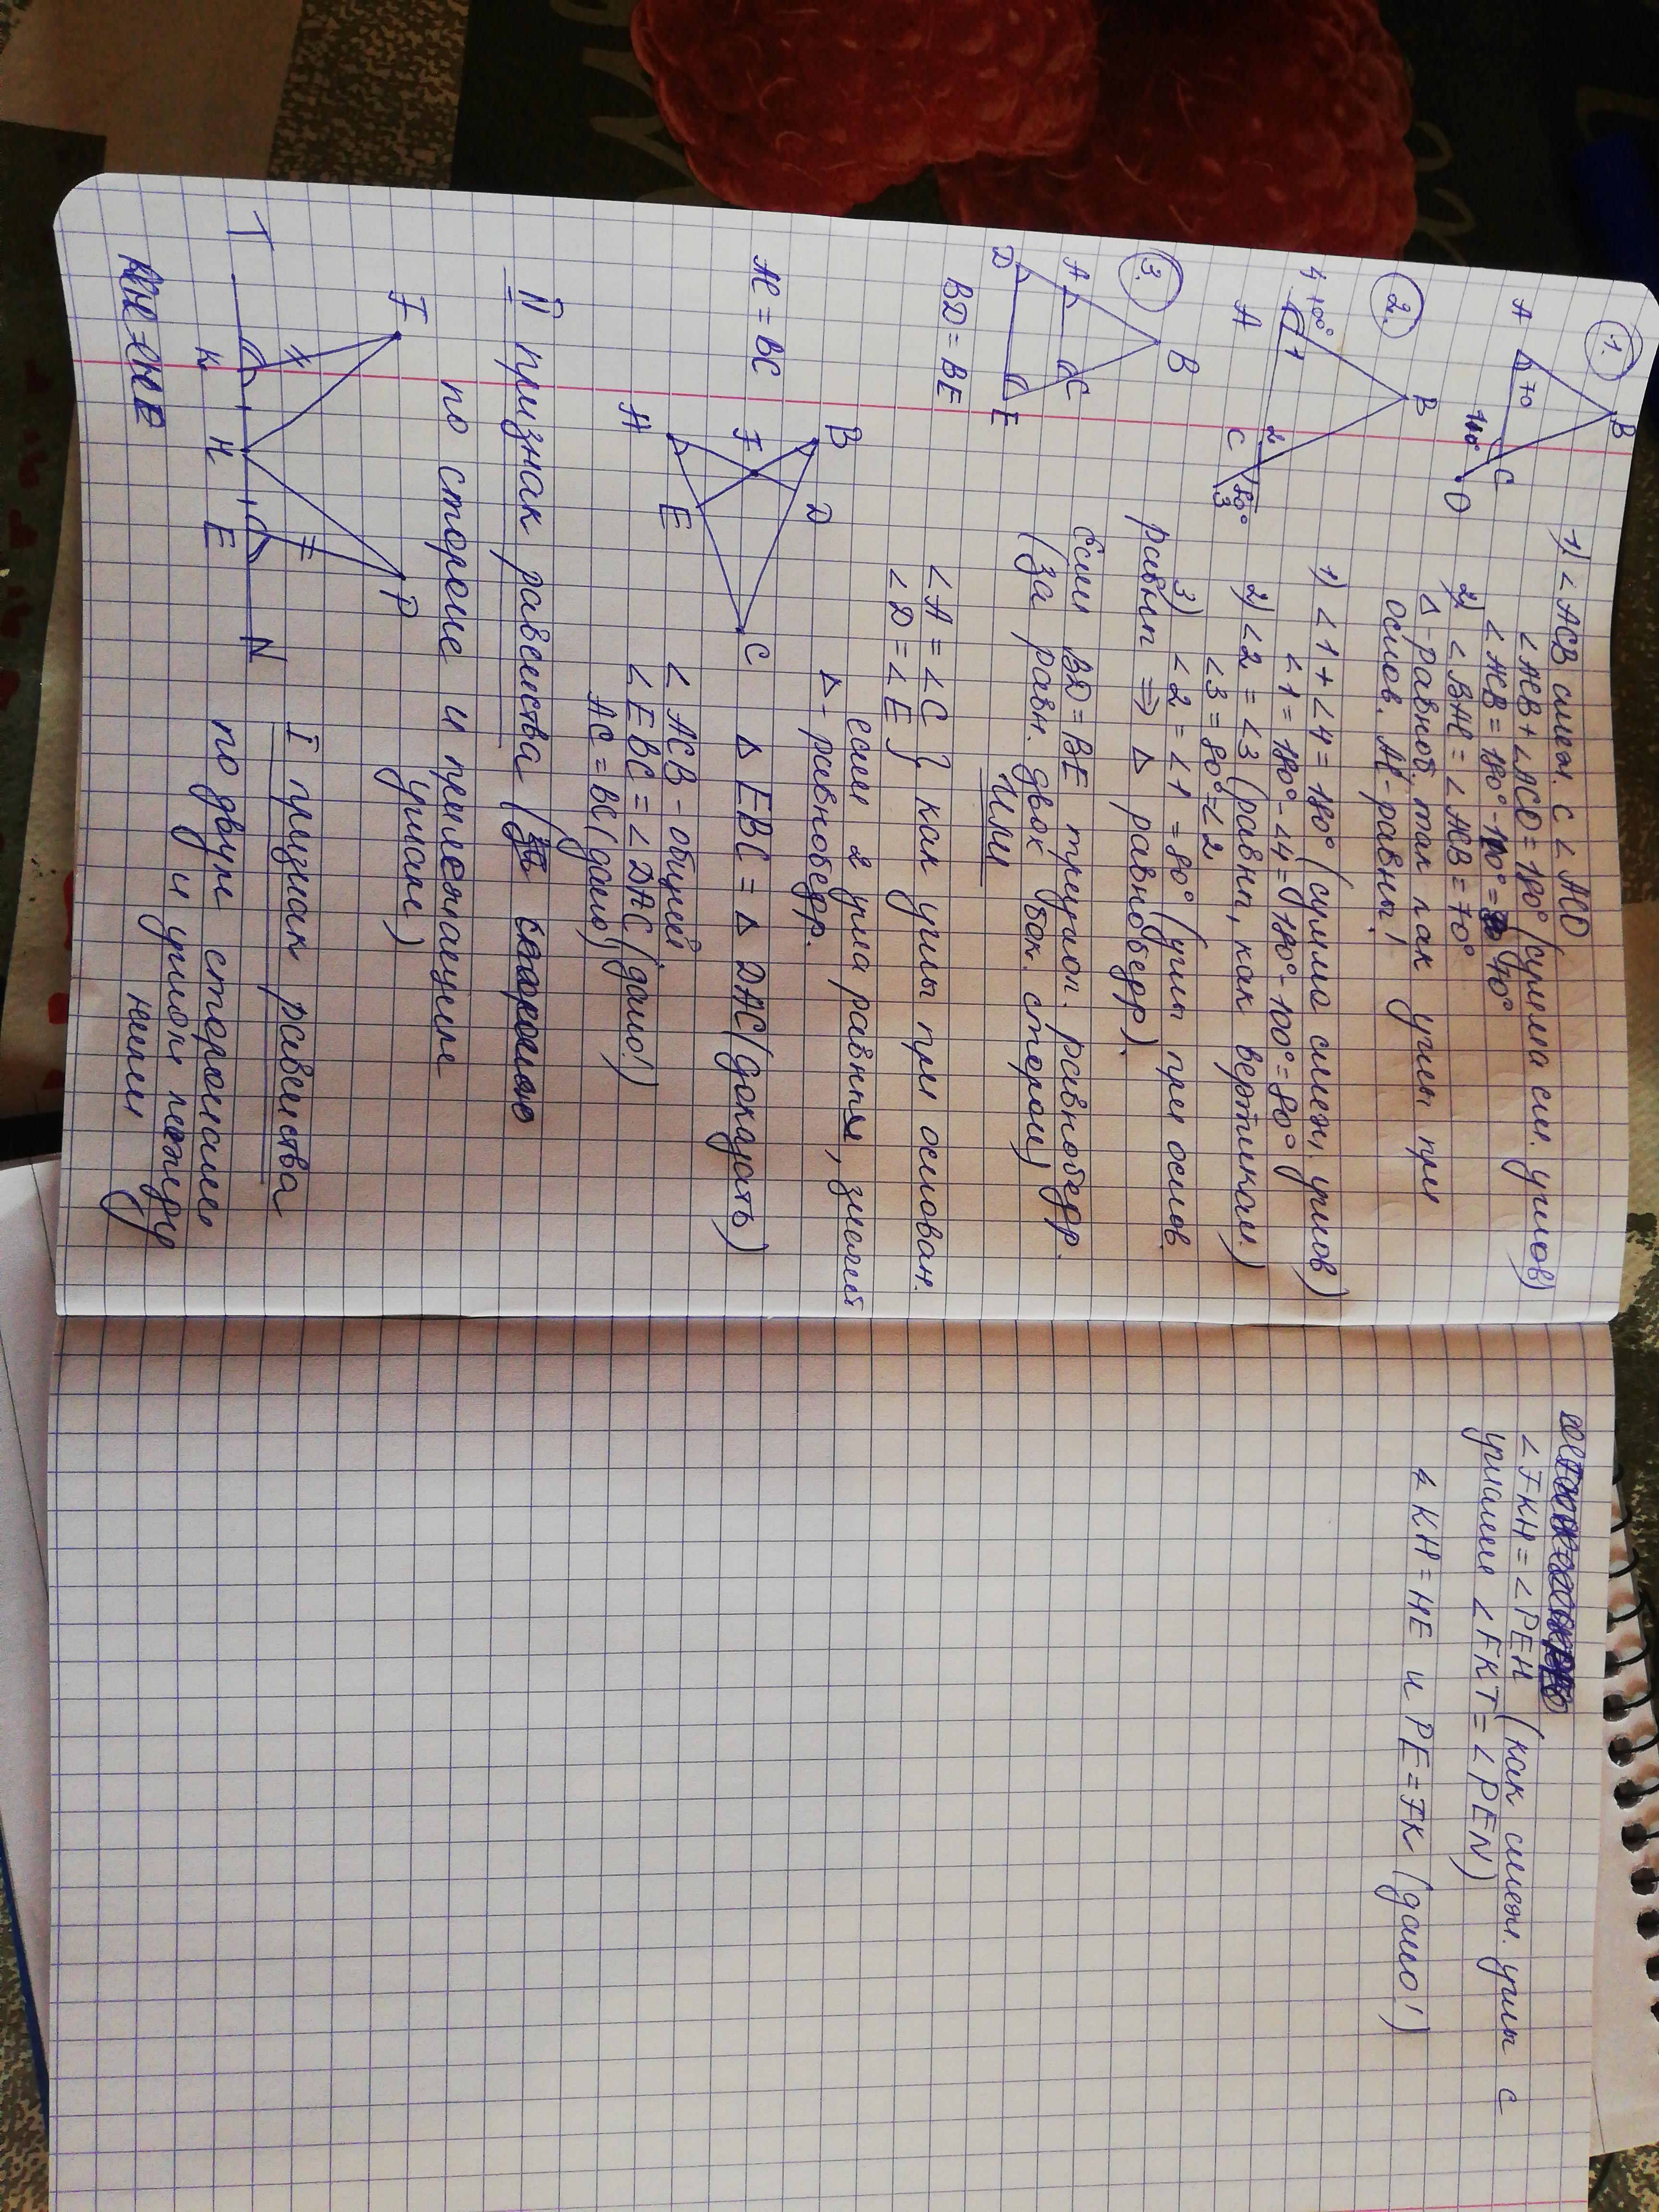 1.
B
A
70
110°
C
O
1) ∠ACB смеж. с ∠ACO
∠ACB + ∠ACO = 180° (сумма см. углов)
∠ACB = 180° - 110° = 70°
2) ∠BAC = ∠ACB = 70°
Δ - равноб, так как углы при
основ. AC - равны!
2.
B
4
100°
1
A
2
C
80°
3
1) ∠1 + ∠4 = 180° (сумма смеж. углов)
∠1 = 180° - ∠4 = 180° - 100° = 80°
2) ∠2 = ∠3 (равны, как вертикал.)
∠3 = 80° = ∠2
3) ∠2 = ∠1 = 80° (углы при основ.
равны ⇒ Δ равнобедр).
3.
B
A
C
D
E
BD = BE
Если BD = BE треугол. равнобедр.
(за равн. двох бок. сторон)
или
∠A = ∠C } как углы при основан.
∠D = ∠E
если 2 угла равны, значит
Δ - равнобедр.
B
D
F
C
A
E
AC = BC
Δ EBC = Δ DAC (доказать)
∠ ACB - общий
∠ EBC = ∠ DAC (дано!)
AC = BC (дано)
II признак равенства (
по стороне и прилежащие
углам)
F
P
T
K
H
E
N
I признак равенства
по двум сторонами
и углом между
ними
∠FKH = ∠PEH (как смеж. углы с
углами ∠FKT = ∠PEN)
KH = HE и PE = FK (дано!)